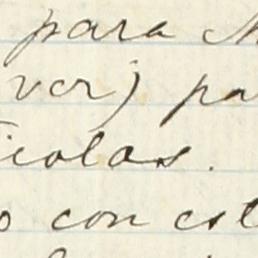 para
ver) pa
icolas.
o con est